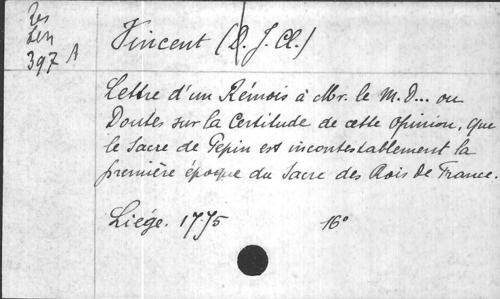 Res
Len
397 A
Vincent (D. J. Cl.)
Lettre d'un Rémois à Mr. le M. D... ou
Doutes sur la Certitude de cette Opinion, que
le Sacre de Pepin est incontestablement la
première époque du Sacre des Rois de France.
Liége. 1775 16°